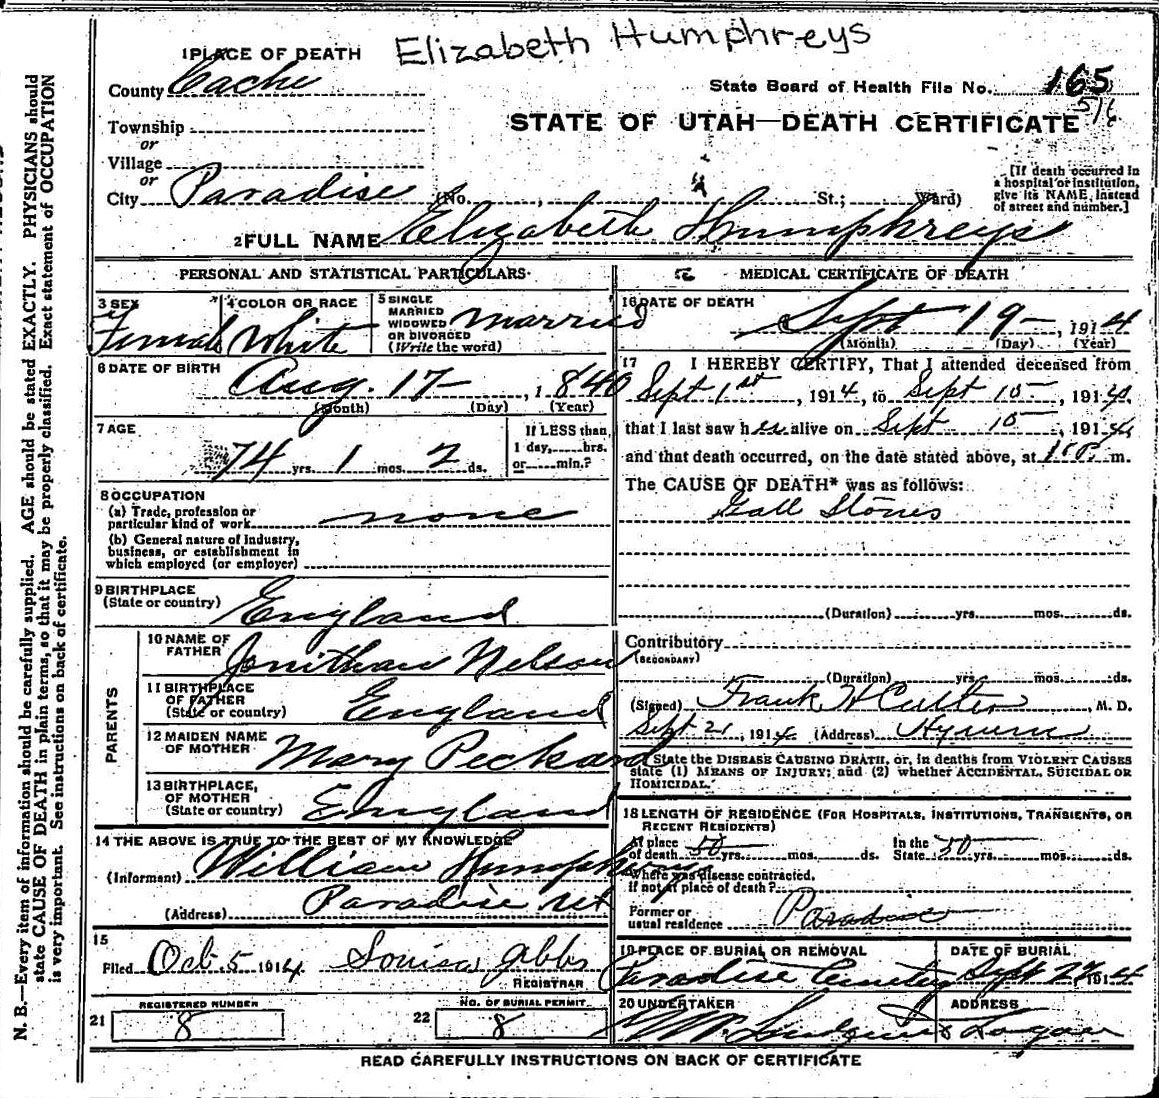 Elizabeth Humphreys
1 PLACE OF DEATH
County Cache
State Board of Health File No. 165
516
Township
or
Village
or
City Paradise (No. , St.; Ward)
STATE OF UTAH—DEATH CERTIFICATE
[If death occurred in
a hospital or institution,
give its NAME instead
of street and number.]
2 FULL NAME Elizabeth Humphreys
PERSONAL AND STATISTICAL PARTICULARS
3 SEX
Female
4 COLOR OR RACE
White
5 SINGLE
MARRIED
WIDOWED
OR DIVORCED
(Write the word)
Married
6 DATE OF BIRTH
Aug. 17 , 1840
(Month) (Day) (Year)
7 AGE
74 yrs. 1 mos. 2 ds.
If LESS than
1 day, hrs.
or min.?
8 OCCUPATION
(a) Trade, profession or
particular kind of work none
(b) General nature of industry,
business, or establishment in
which employed (or employer)
9 BIRTHPLACE
(State or country) England
PARENTS
10 NAME OF
FATHER Jonithan Nelson
11 BIRTHPLACE
OF FATHER
(State or country) England
12 MAIDEN NAME
OF MOTHER Mary Peckard
13 BIRTHPLACE,
OF MOTHER
(State or country) England
14 THE ABOVE IS TRUE TO THE BEST OF MY KNOWLEDGE
(Informant) William Humphreys
(Address) Paradise Ut
15
Filed Oct 5 1914. Louisa Gibbs
REGISTRAR
REGISTERED NUMBER
21 8
NO. OF BURIAL PERMIT
22 8
MEDICAL CERTIFICATE OF DEATH
16 DATE OF DEATH
Sept 19 , 1914
(Month) (Day) (Year)
17 I HEREBY CERTIFY, That I attended deceased from
Sept 1st , 1914, to Sept 15 , 1914,
that I last saw her alive on Sept 15 , 1914,
and that death occurred, on the date stated above, at m.
The CAUSE OF DEATH* was as follows:
Gall Stones
(Duration) yrs. mos. ds.
Contributory
(SECONDARY)
(Duration) yrs. mos. ds.
(Signed) Frank H Cutler , M. D.
Sept 21 , 1914 (Address) Hyrum
*State the DISEASE CAUSING DEATH, or, in deaths from VIOLENT CAUSES
state (1) MEANS OF INJURY; and (2) whether ACCIDENTAL, SUICIDAL OR
HOMICIDAL.
18 LENGTH OF RESIDENCE (FOR HOSPITALS, INSTITUTIONS, TRANSIENTS, OR
RECENT RESIDENTS)
At place
of death 50 yrs. mos. ds.
In the
State 50 yrs. mos. ds.
Where was disease contracted,
if not at place of death?
Former or
usual residence Paradise
19 PLACE OF BURIAL OR REMOVAL
Paradise Cemetery
DATE OF BURIAL
Sept 22 1914
20 UNDERTAKER
ADDRESS
Logan
READ CAREFULLY INSTRUCTIONS ON BACK OF CERTIFICATE
N. B.—Every item of information should be carefully supplied. AGE should be stated EXACTLY. PHYSICIANS should
state CAUSE OF DEATH in plain terms, so that it may be properly classified. Exact statement of OCCUPATION
is very important. See instructions on back of certificate.